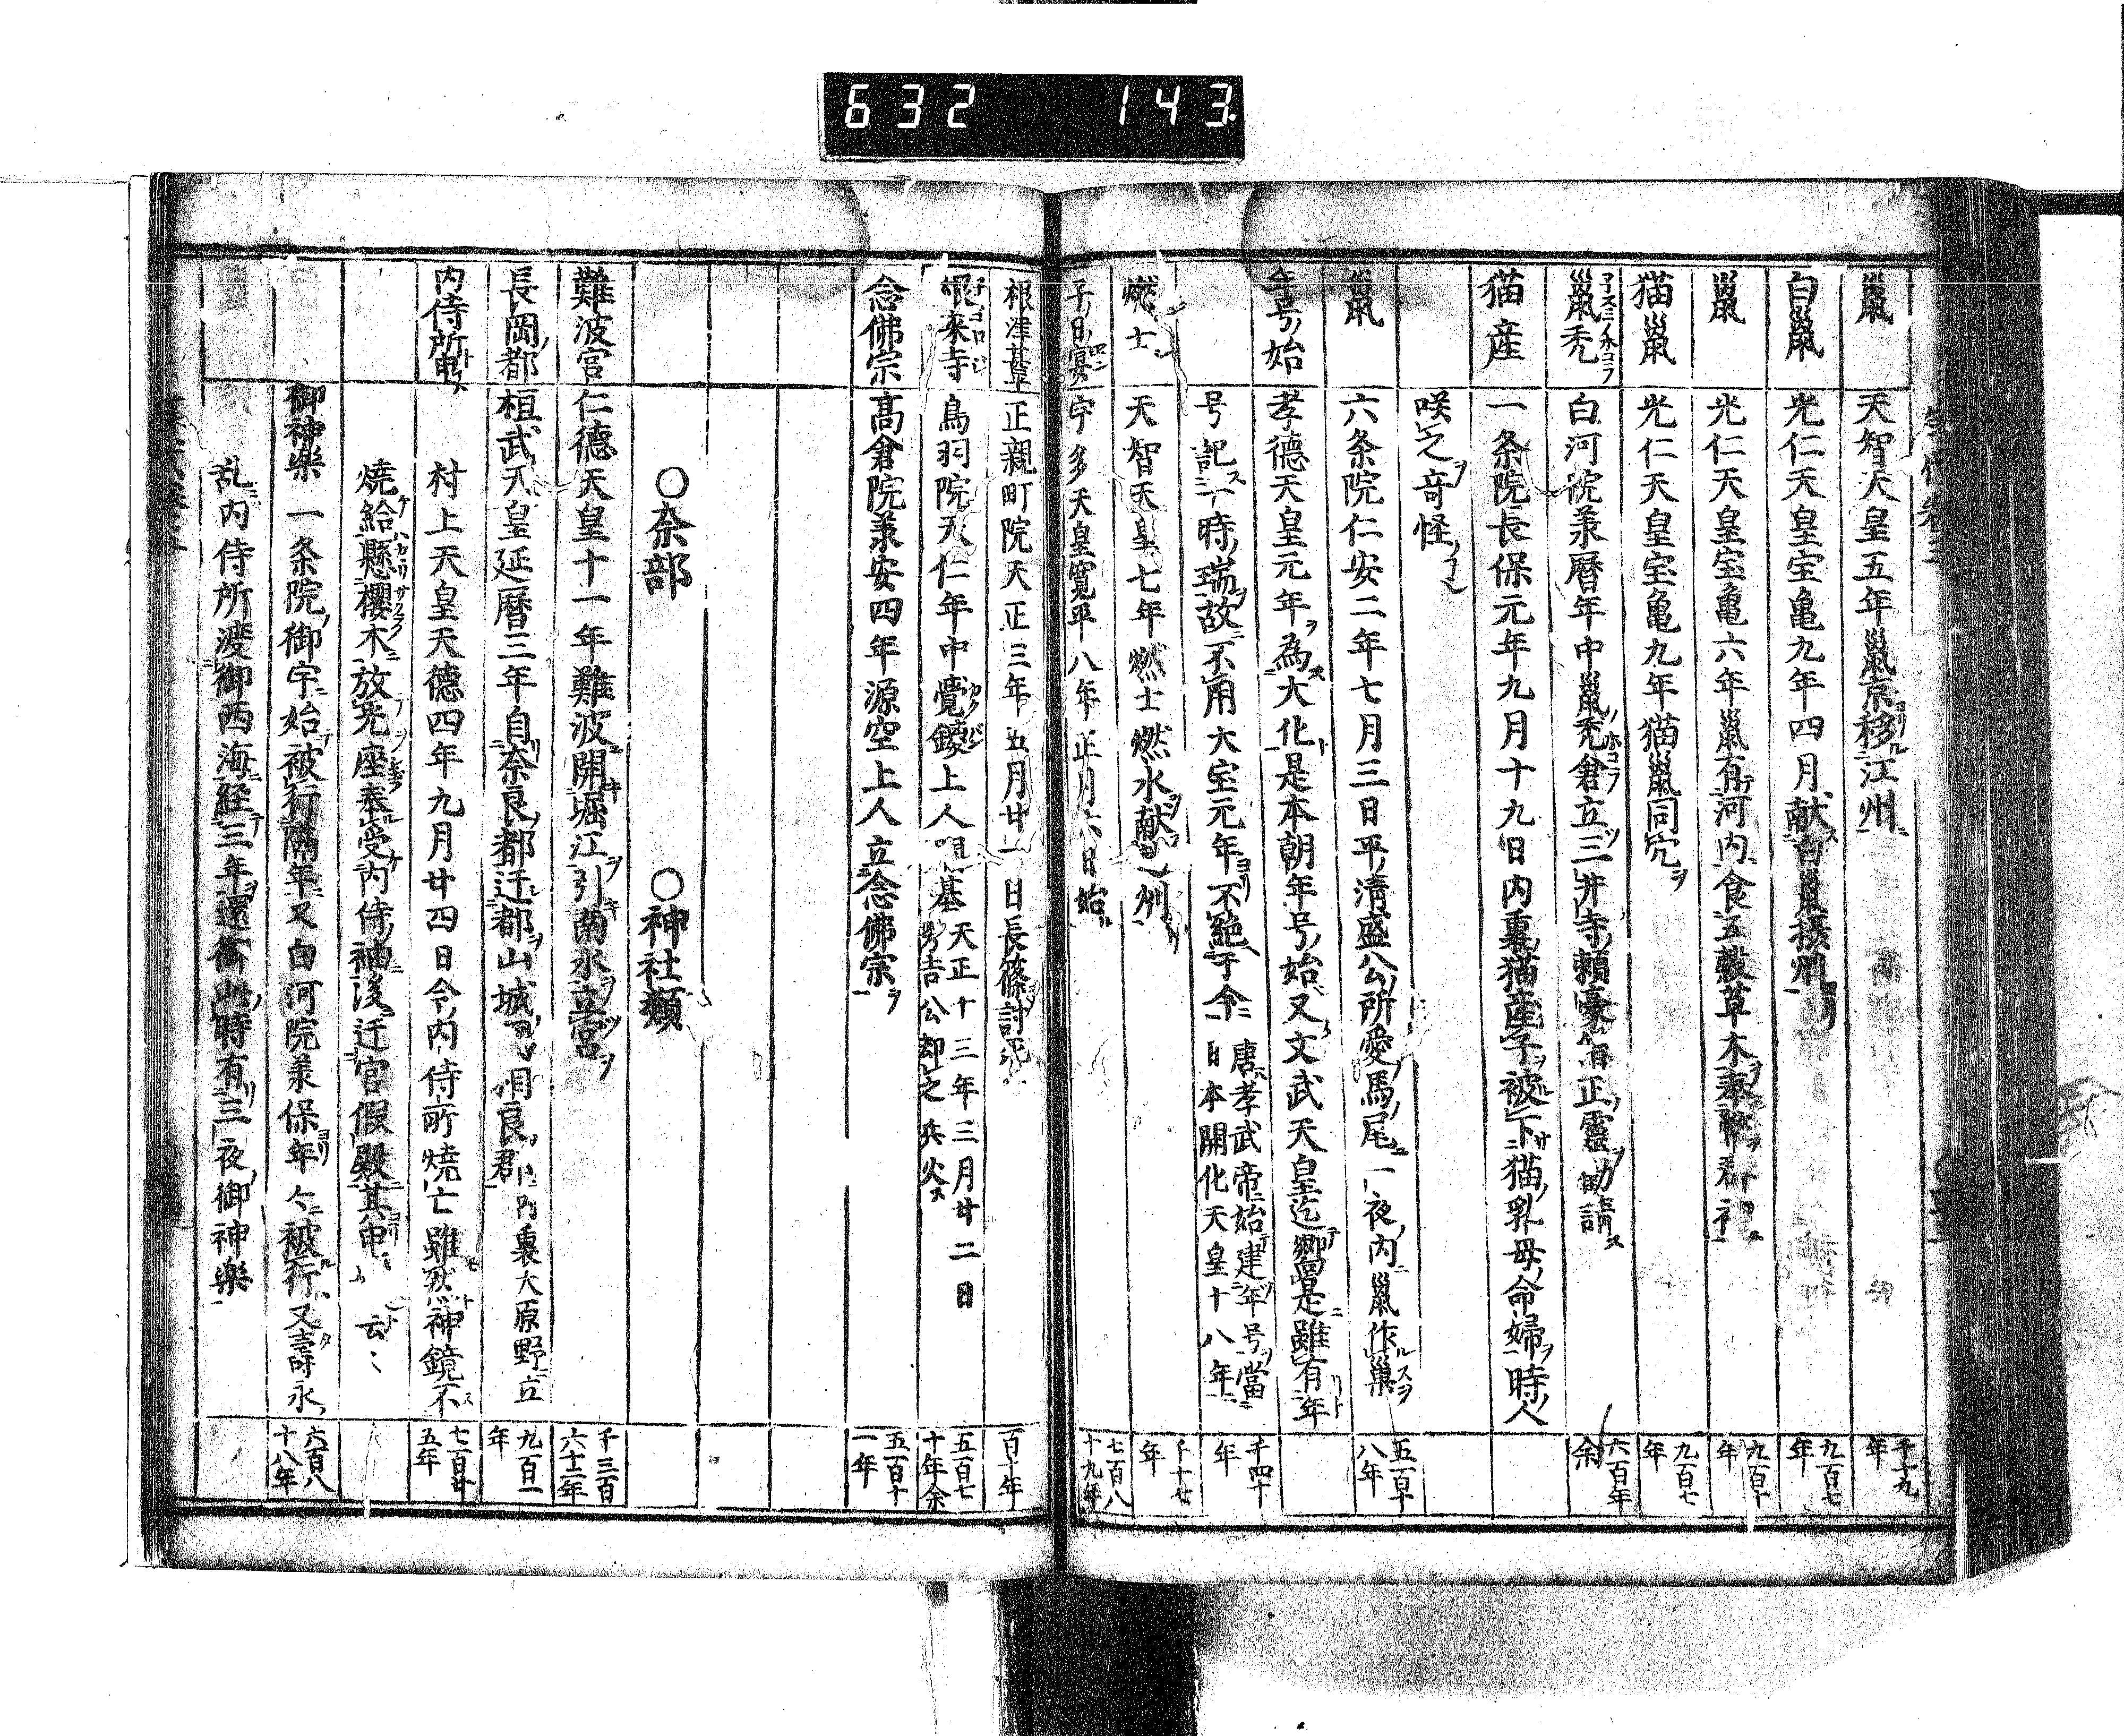 632 143
鼠 天智天皇五年鼠京移江州 千十九年
白鼠 光仁天皇宝亀九年四月献白鼠摂州 九百七年
鼠 光仁天皇宝亀六年鼠有河内食五穀草木奉幣群神 九百十年
猫鼠 光仁天皇宝亀九年猫鼠同穴 九百七年
鼠禿 白河院承暦年中鼠禿倉立三井寺頼豪僧正霊勧請 六百年余
猫産 一条院長保元年九月十九日内裏猫産子被下猫乳母命婦時人
咲之奇怪
鼠 六条院仁安二年七月三日平清盛公所愛馬尾一夜内鼠作巣 五百十八年
年号始 孝德天皇元年為大化是本朝年号始又文武天皇迄郷是雖有年
号記一時瑞故不用大宝元年不絶于今 唐孝武帝始建年号當日本開化天皇十八年 千四十年
燃士 天智天皇七年燃士燃水献 州 千十七年
子日宴 宇多天皇寛平八年正月六日始 七百八十九年
根津甚平 正親町院天正三年五月廿一日長篠討死 百十年
根来寺 鳥羽院天仁年中覚鑁上人開基 天正十三年三月廿二日秀吉公却之兵火 五百七十年余
念佛宗 高倉院承安四年源空上人立念佛宗 五百十一年
○奈部 ○神社類
難波宮 仁德天皇十一年難波開堀江引南水立宮 千三百六十二年
長岡都 桓武天皇延暦三年自奈良都迁都山城 良郡 内裏大原野立 九百一年
内侍所 村上天皇天德四年九月廿四日令内侍所焼亡雖然神鏡不 七百廿五年
焼給懸櫻木放光座奉受内侍袖後迁宮假殿其 云々
御神楽 一条院御宇始被行隔年又白河院承保年々被行又壽永 六百八十八年
乱内侍所渡御西海経三年還御此時有三夜御神楽